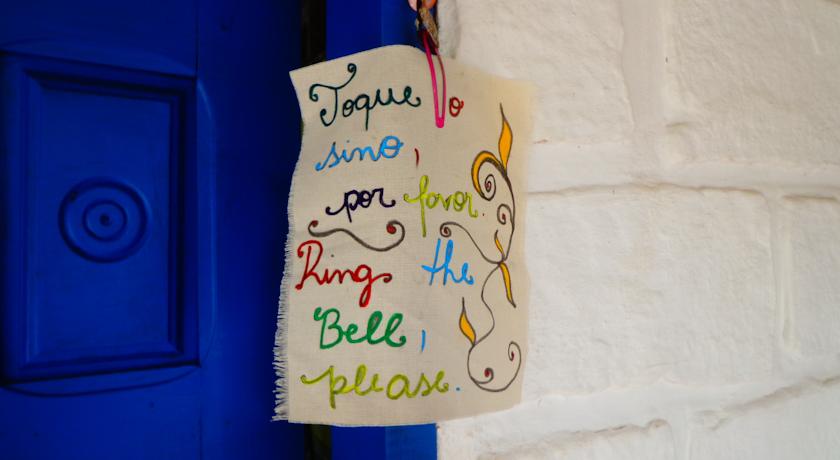 Toque o
sino,
por favor.
Ring the
Bell,
please.